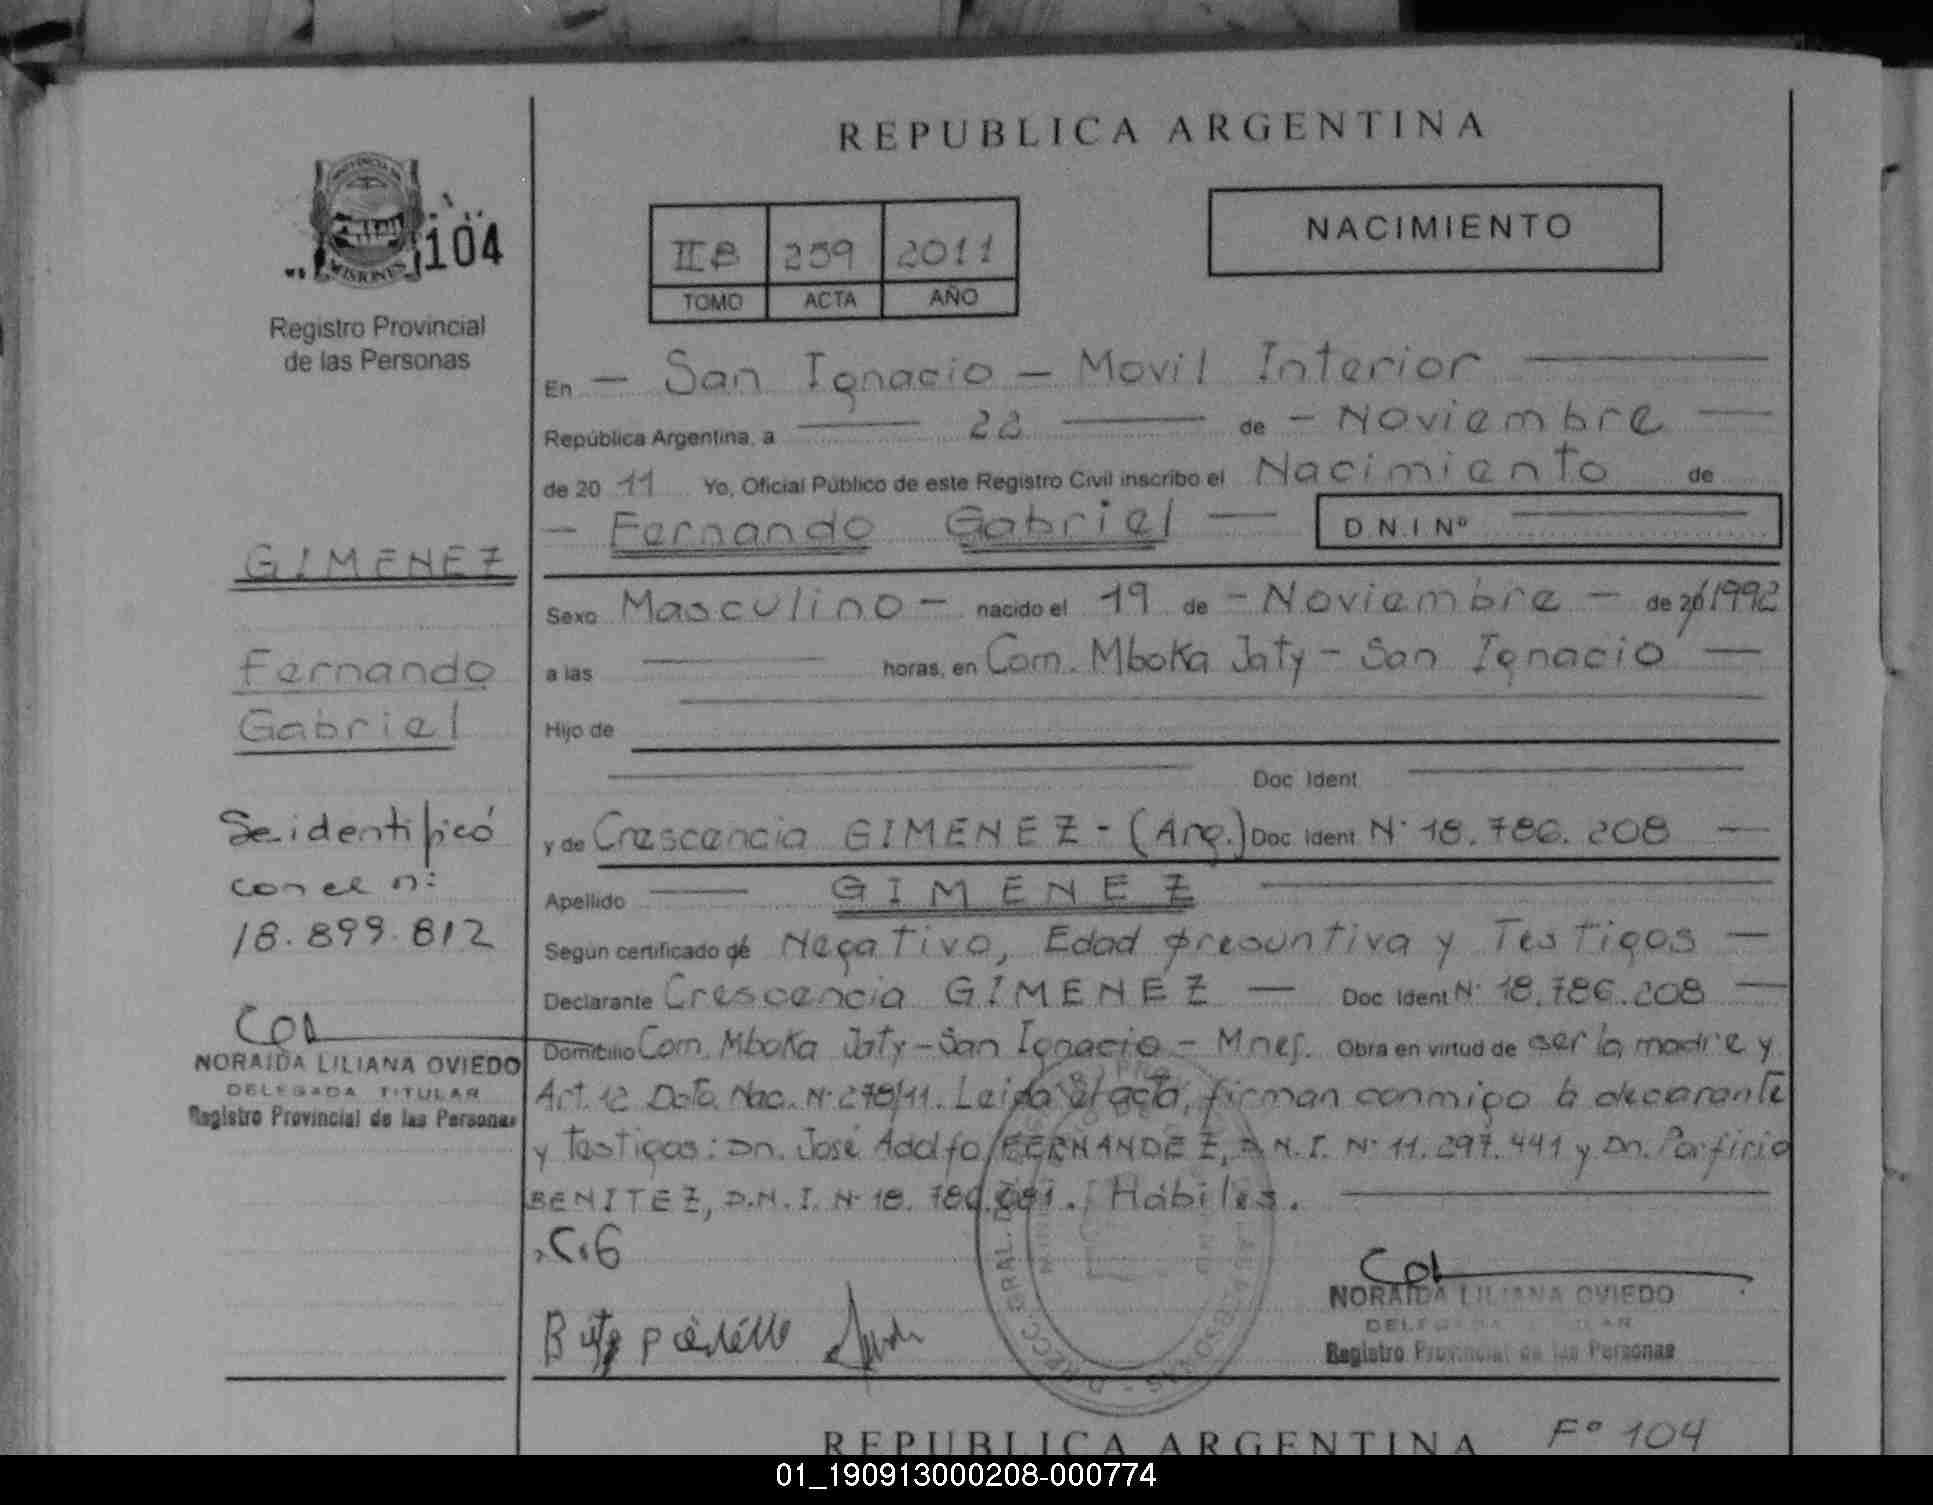 REPUBLICA ARGENTINA
PROVINCIA DE
MISIONES
104
Registro Provincial
de las Personas
II B 259 2011
TOMO ACTA AÑO
NACIMIENTO
En - San Ignacio - Movil Interior
República Argentina, a 22 de - Noviembre
de 20 11 Yo, Oficial Público de este Registro Civil inscribo el Nacimiento de
- Fernando Gabriel - D.N.I Nº
GIMENEZ
Fernando
Gabriel
Sexo Masculino - nacido el 19 de - Noviembre - de 20/1992
a las horas, en Com. Mboka Jaty - San Ignacio -
Hijo de
Doc Ident
y de Crescencia GIMENEZ - (Arg.) Doc Ident Nº 18.786.208 -
Apellido GIMENEZ
Según certificado de Negativo, Edad presuntiva y Testigos -
Declarante Crescencia GIMENEZ - Doc Ident Nº 18.786.208 -
Domicilio Com. Mboka Jaty - San Ignacio - Mnes. Obra en virtud de ser la madre y
Art. 12 Dcto. Nac. Nº 278/11. Leida el acta, firman conmigo la declarante
y testigos: Dn. José Adolfo FERNANDEZ, D.N.I. Nº 11.297.441 y Dn. Porfirio
BENITEZ, D.N.I. Nº 18.786.081. Hábiles.
Se identificó
con el n:
18.899.812
NORAIDA LILIANA OVIEDO
DELEGADA TITULAR
Registro Provincial de las Personas
C.G
NORAIDA LILIANA OVIEDO
DELEGADA TITULAR
Registro Provincial de las Personas
REPUBLICA ARGENTINA Fº 104
01_190913000208-000774